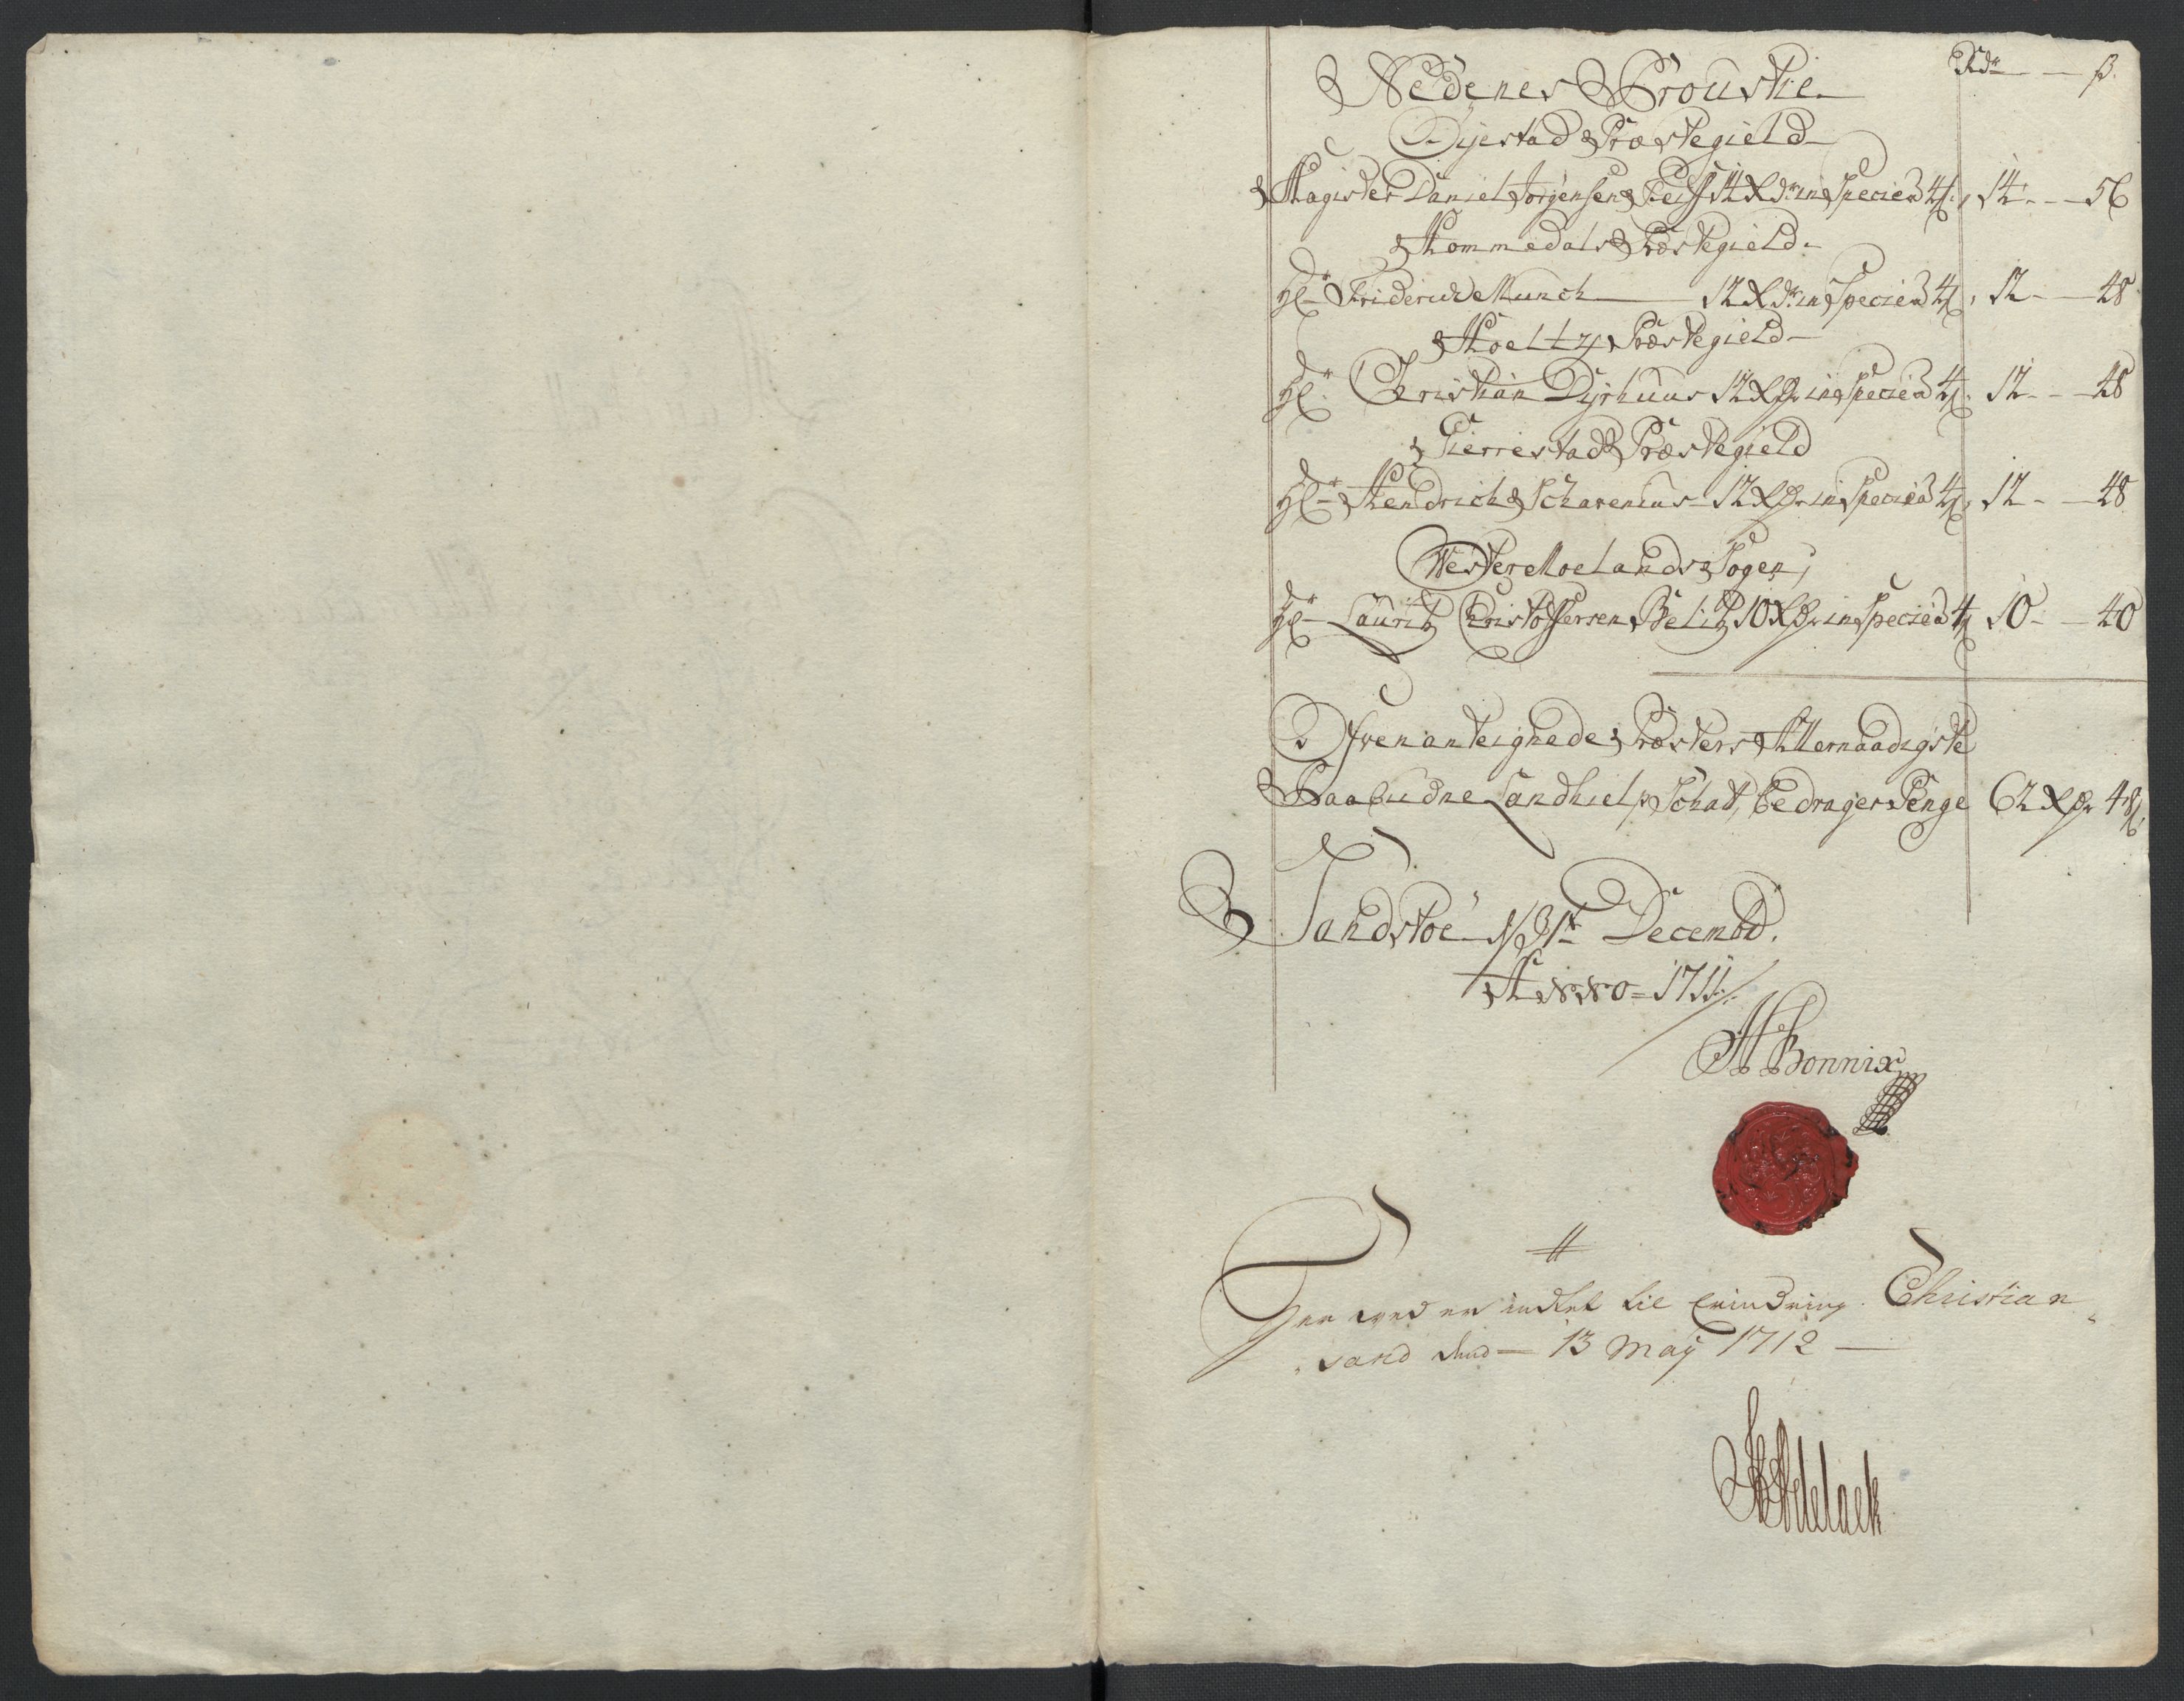 Rdr — ß.
Nedenes Proustie
Øyestad Præstegield
Magister Daniel Jørgensen 14 Rdr in Specie à 4 ß, 14 - - 56
Hommedals Præstegield
Hr Friderich Munch 12 Rdr in Specie à 4 ß, 12 - - 48
Holtz Præstegield
Hr Christian Dyrhuus 12 Rdr in Specie à 4 ß. 12 - - 48
Gierrestad Præstegield
Hr Hendrich Scharenius 12 Rdr in Specie à 4 ß, 12 - - 48
Wester Molands Sogen,
Hr Lauritz Christoffersen Belitz 10 Rdr in Specie à 4 ß 10 - - 40
Ofvenanteignede Præsters Allernaadigste
Paabudne Landhielp Schat, bedrager Penge 62 Rdr 48 ß,
Sandstøe d/31te Decembr.
Anno = 1711
H Bonnix
Her ved er indtet til Erindring. Christian
sand den 13 Maij 1712
Adelaer